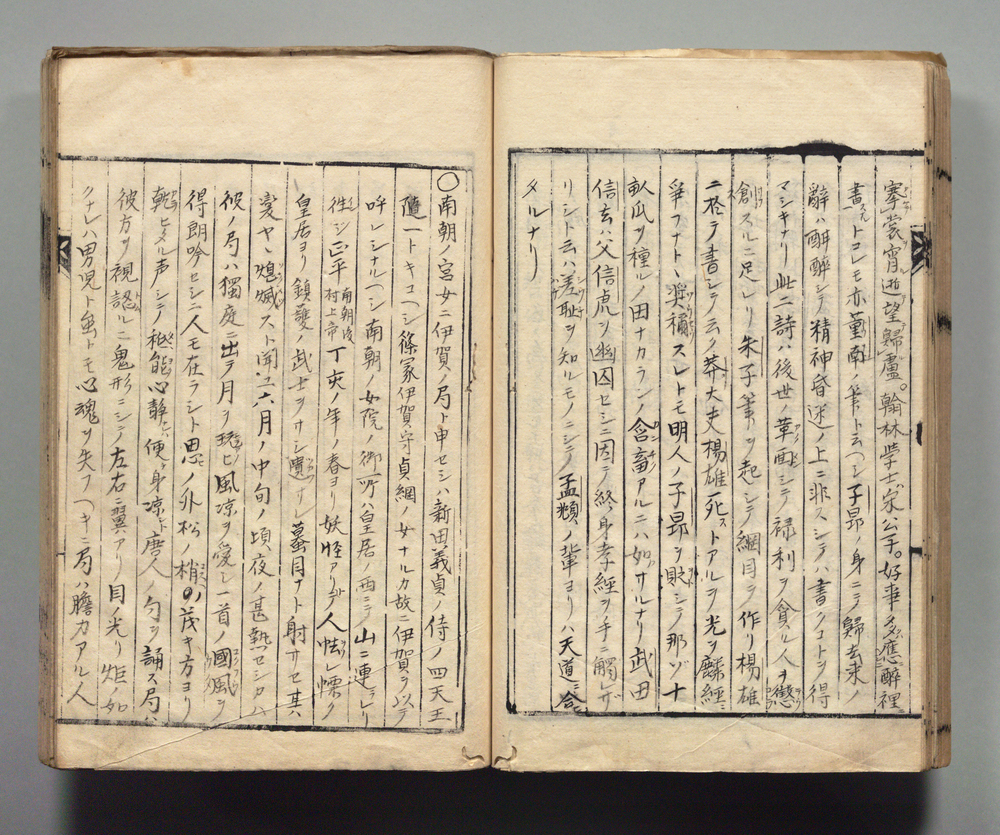 搴裳宵逝望歸盧。翰林學士宋公子。好事多應醉裡ニ
畫ストコレモ亦董南ノ筆ト云ヘシ子昂ノ身ニテ歸去来ノ
辭ハ酣醉シテ精神昏迷ノ上ニ非スシテハ書クコトヲ得
マシキナリ此二詩ハ後世ノ革面シテ禄利ヲ貪ル人ヲ懲
創スルニ足レリ朱子筆ヲ起シテ綱目ヲ作リ楊雄
ニ於テ書シテ云ク莽大夫楊雄死ストアルヲ光ヲ麟經ニ
爭フナト、奨襃スレトモ明人ノ子昂ヲ貶シテ那ゾナ
畝瓜ヲ種ルノ田ナカランノ含畜アルニハ如サルナリ武田
信玄ハ父信虎ヲ幽囚セシニ因テ終身孝經ヲ手ニ觸レザ
リシト云ハ羞耻ヲ知ルモノニシテ孟頫ノ輩ヨリハ天道ニ合
タルナリ
〇南朝ノ宮女ニ伊賀ノ局ト申セシハ新田義貞ノ侍ノ四天王
隨一トキコヘシ篠冢伊賀守貞綱ノ女ナルカ故ニ伊賀ヲ以テ
呼レシナルヘシ南朝ノ女院ノ御所ハ皇居ノ西ニテ山ニ連ラレリ
徃シ正平南朝後村上帝丁亥ノ年ノ春ヨリ妖怪アリトテ人怯レ慄ク
皇居ヨリ鎮護ノ武士ヲサシ遣サレ蟇目ナト射サセ其ハ
変ヤヽ熄滅スト聞ユ六月ノ中旬ノ頃夜ノ甚熱セシカハ
彼ノ局ハ獨庭ニ出テ月ヲ瞻ヒ風凉ヲ愛シ一首ノ國風ヲ
得朗吟セシニ人モ在ラシト思ヒノ外松ノ梢ノ茂キ方ヨリ
乾ヒタル声シテ秪能心静ナレハ便ト身凉シト唐人ノ句ヲ誦ス局ハ
彼方ヲ視認ルニ鬼形ニシテ左右ニ翼アリノ目ノ光リ炬ノ如
クナレハ男児ト虽トモ心魂ヲ失フヘキニ局ハ膽力アル人